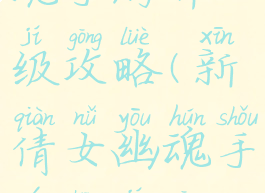 jí gōng lüè xīn
级攻略(新
qiàn nǚ yōu hún shǒu
倩女幽魂手